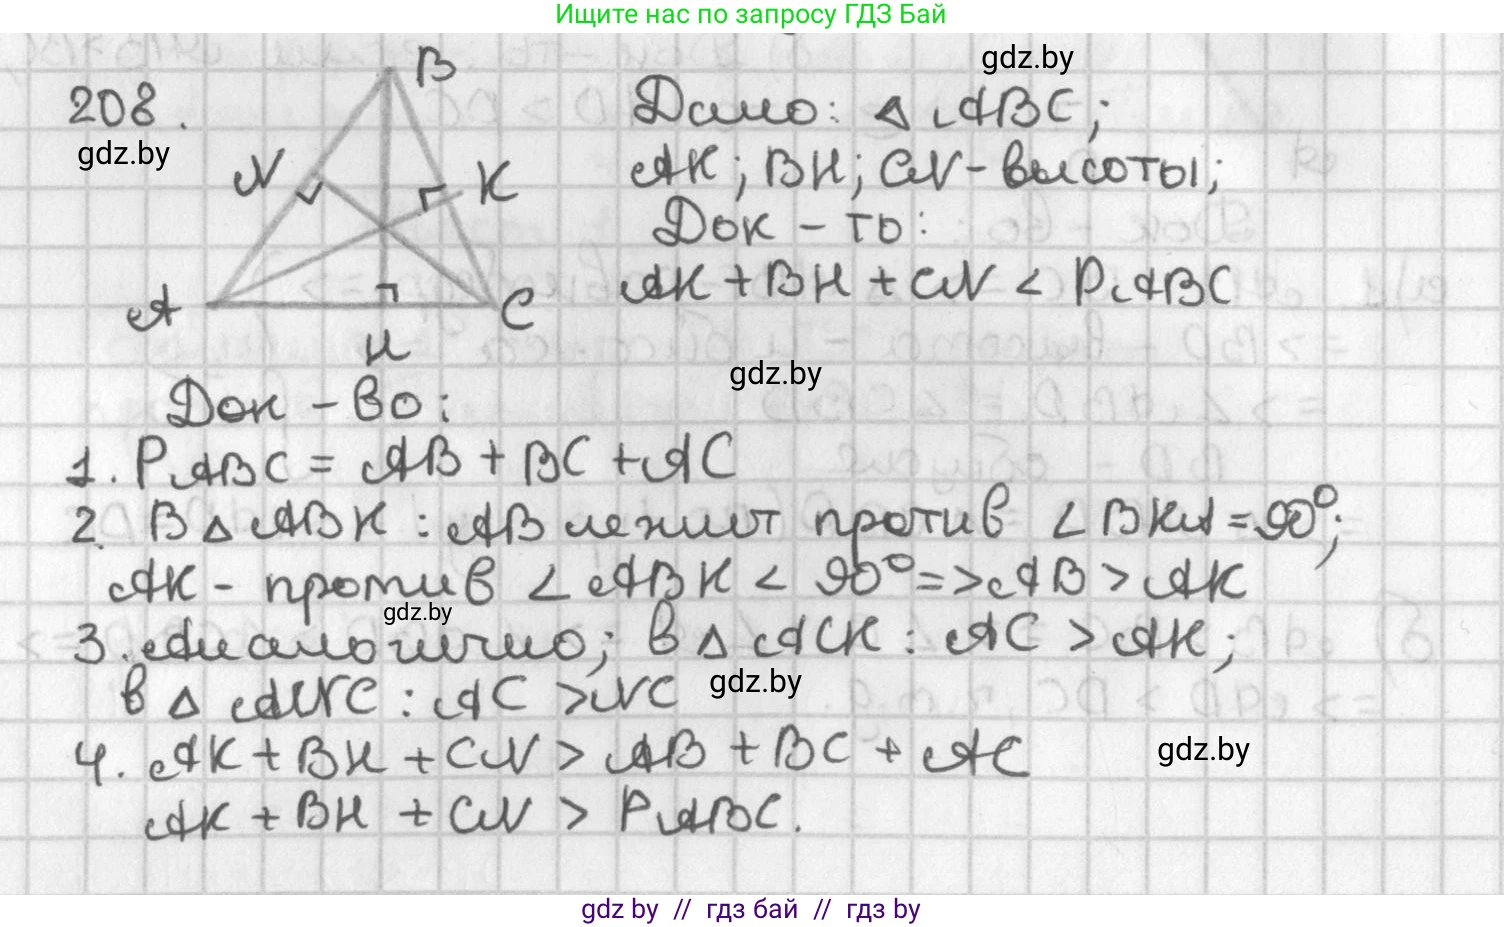 Ищите нас по запросу ГДЗ Бай
gdz.by
208.
gdz.by
B
N
K
A
C
H
Дано: △ ABC;
AK; BH; CN - высоты;
Док - ть:
AK + BH + CN < PABC
gdz.by
Док - во:
1. PABC = AB + BC + AC
2. В △ ABK : AB лежит против ∠ BKA = 90°;
AK - против ∠ ABK < 90° => AB > AK
gdz.by
3. Аналогично; в △ ACK : AC > AK;
в △ ANC : AC > NC
gdz.by
4. AK + BH + CN > AB + BC + AC
gdz.by
AK + BH + CN > PABC.
gdz by // гдз бай // гдз by